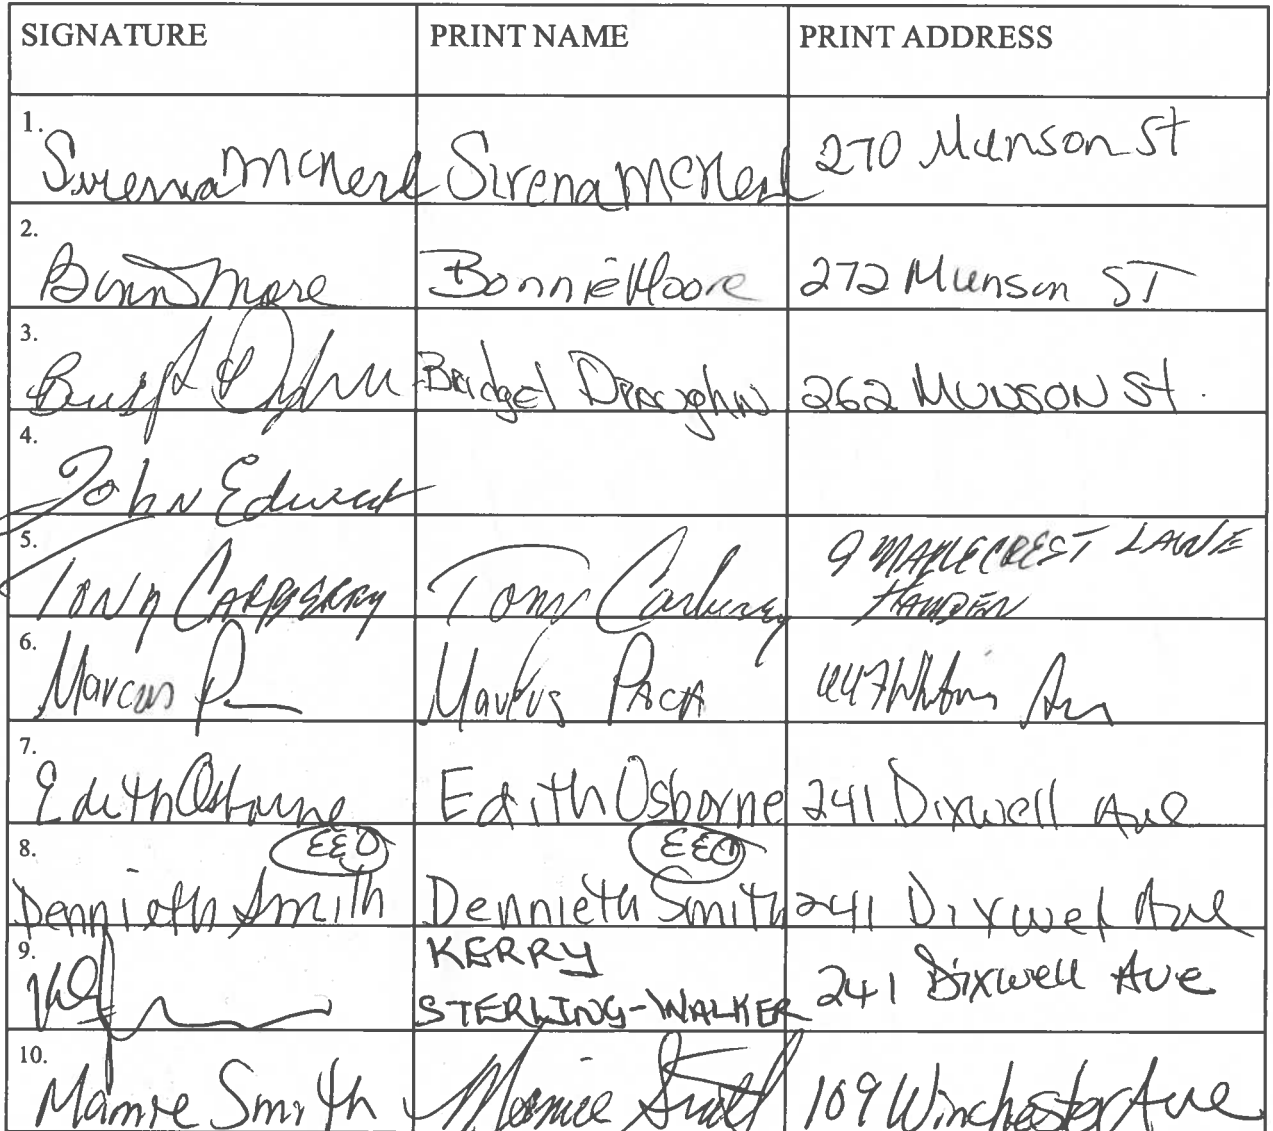 SIGNATURE PRINT NAME PRINT ADDRESS
1. Sirena McNeil Sirena McNeil 270 Munson St
2. Bonnie Moore 272 Munson ST
3. Bridget Draughn 262 MUNSON St.
4. John Edward
5. TONY CARBERRY Tony Carberry 9 MAPLECREST LANE
HAMDEN
6. Marcus Marcus PACA 447 Ave
7. Edith Osborne Edith Osborne 241 Dixwell Ave
EEO EEO
8. Dennieth Smith Dennieth Smith 241 Dixwel Ave
9. KERRY
STERLING-WALKER 241 Dixwell Ave
10. Mamie Smith Mamie Smith 109 Winchester Ave